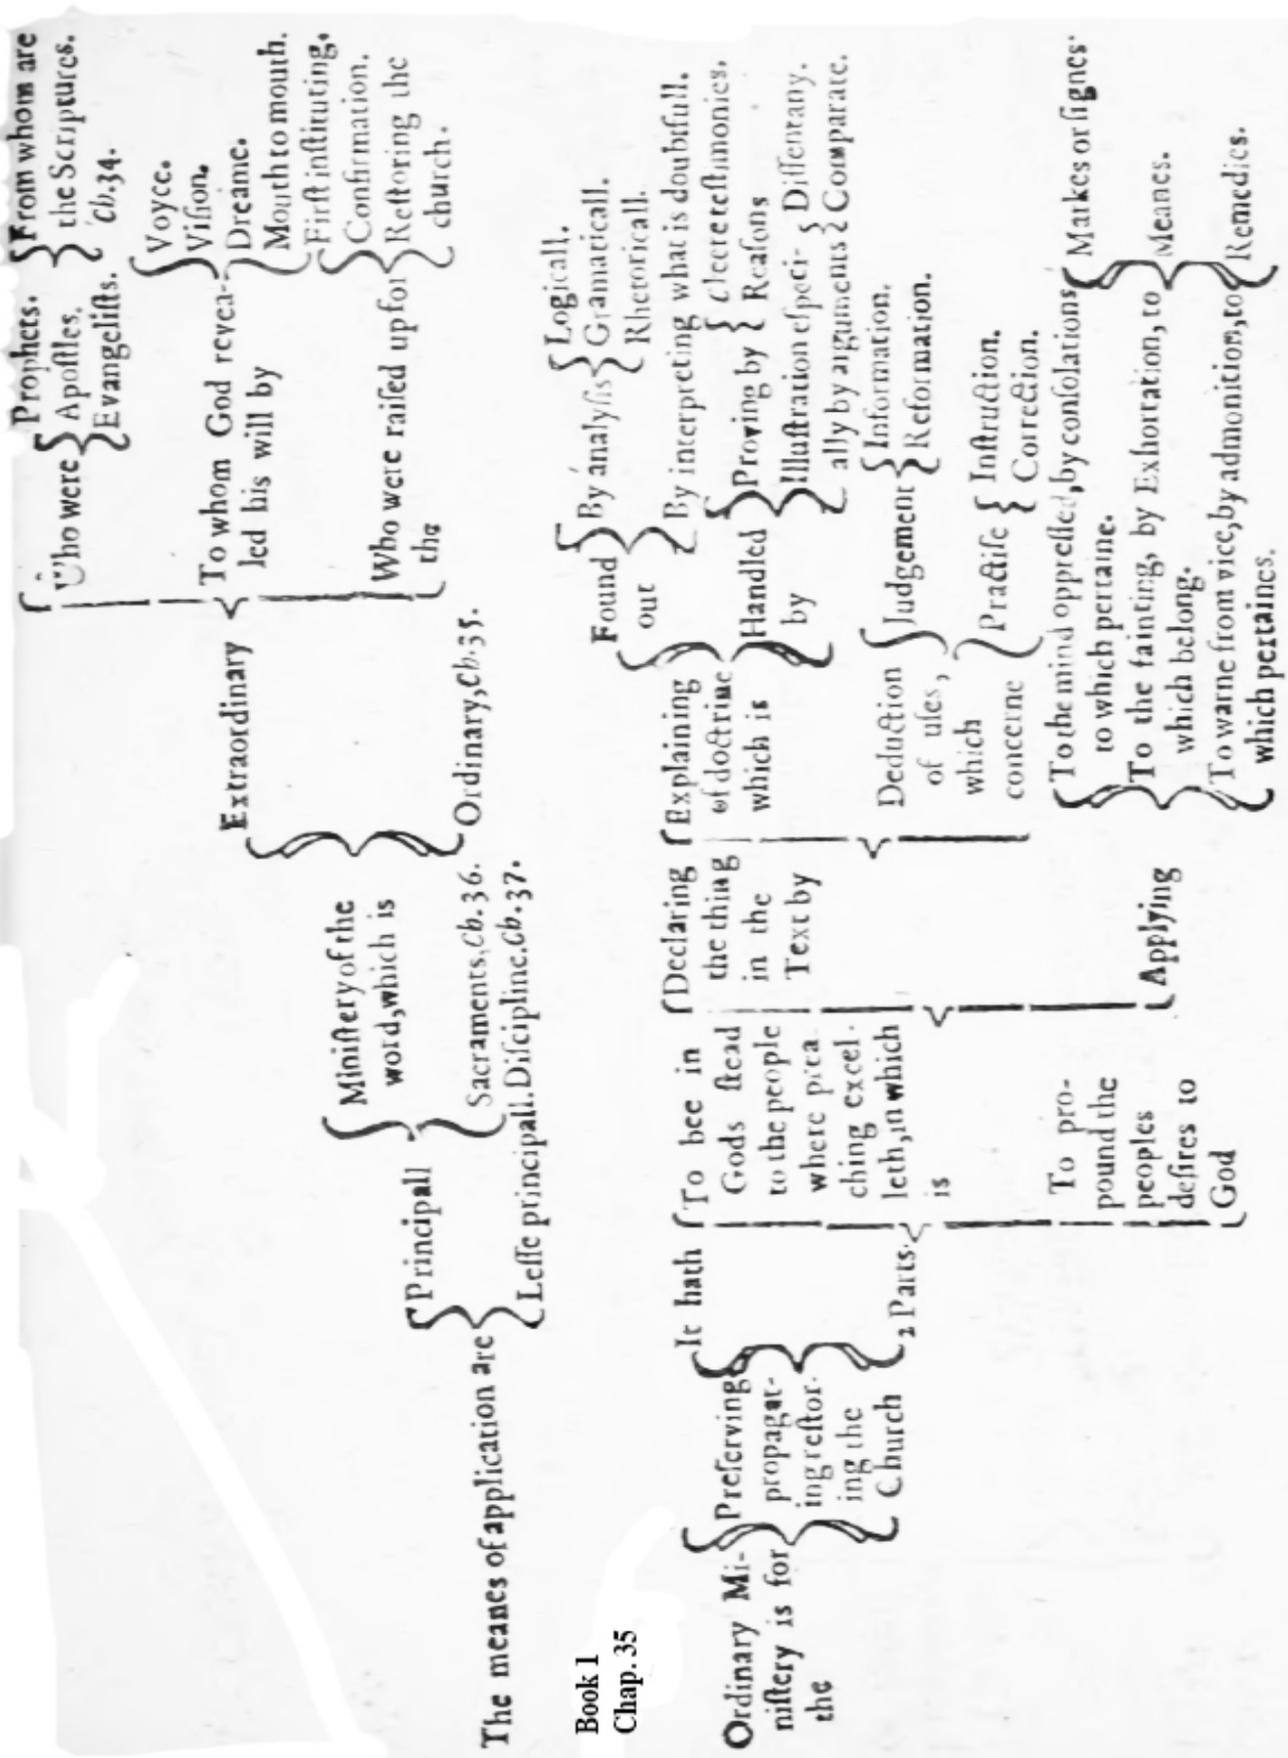 The meanes of application are
Principall
Ministery of the
word, which is
Extraordinary
Who were
Prophets.
Apostles.
Evangelists.
From whom are
the Scriptures.
Ch.34.
To whom God revea-
led his will by
Voyce.
Vision.
Dreame.
Mouth to mouth.
Who were raised up for
the
First instituting.
Confirmation.
Restoring the
church.
Ordinary, Ch.35.
Sacraments, Ch.36.
Lesse principall. Discipline. Ch.37.
Book 1
Chap. 35
Ordinary Mi-
nistery is for
the
Preserving
propagat-
ing restor-
ing the
Church
It hath
2 Parts.
To bee in
Gods stead
to the people
where prea
ching excel-
leth, in which
is
Declaring
the thing
in the
Text by
Explaining
of doctrine
which is
Found
out
By analysis
Logicall.
Gramaticall.
Rhetoricall.
By interpreting what is doubtfull.
Handled
by
Proving by
Cleere testimonies.
Reasons
Illustration especi-
ally by arguments
Dissentany.
Comparate.
Deduction
of uses,
which
concerne
Judgement
Information.
Reformation.
Practise
Instruction.
Correction.
Applying
To the mind oppressed, by consolations
to which pertaine.
Markes or signes.
To the fainting, by Exhortation, to
which belong.
Meanes.
To warne from vice, by admonition, to
which pertaines.
Remedies.
To pro-
pound the
peoples
desires to
God